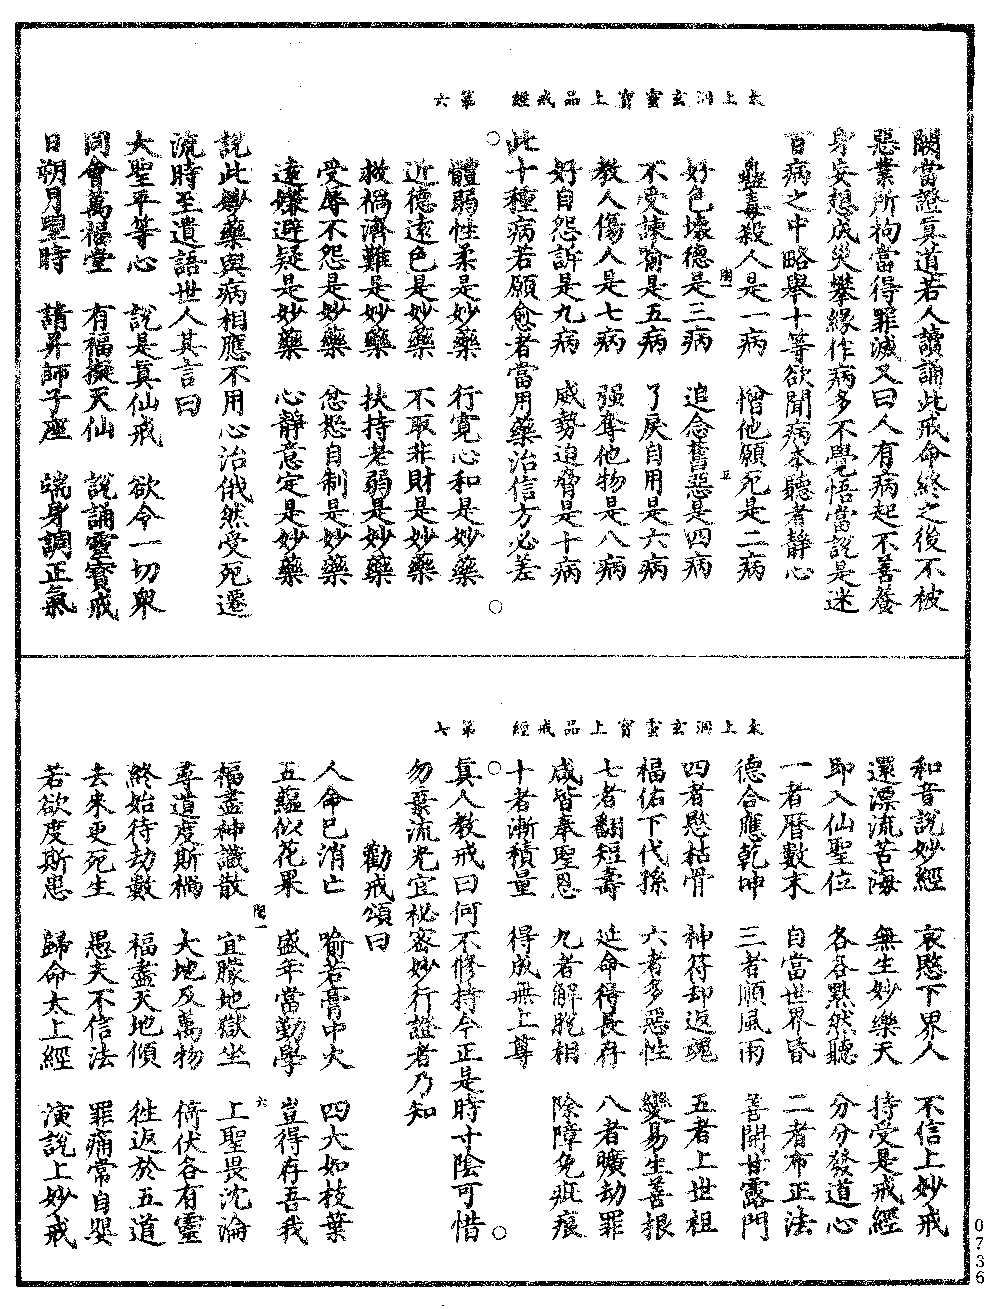 太上洞玄靈寶上品戒經　第六
闕當證真道若人讀誦此戒命終之後不被
惡業所拘當得罪滅又曰人有病起不善養
身妄想成災攀緣作病多不覺悟當說是迷
百病之中略舉十等欲聞病本聽者靜心
蠱毒殺人是一病　憎他願死是二病
好色壞德是三病　追念舊惡是四病
不受諫喻是五病　了戾自用是六病
教人傷人是七病　强奪他物是八病
好自怨訴是九病　威勢迫脅是十病
此十種病若願愈者當用藥治信方必差
體弱性柔是妙藥　行寬心和是妙藥
近德遠色是妙藥　不取非財是妙藥
救禍濟難是妙藥　扶持老弱是妙藥
受辱不怨是妙藥　忿怒自制是妙藥
遠嫌避疑是妙藥　心靜意定是妙藥
說此妙藥與病相應不用心治俄然受死遷
流時至遺語世人其言曰
大聖平等心　說是真仙戒　欲令一切衆
同會萬福堂　有福擬天仙　說誦靈寶戒
日朔月望時　請昇師子座　端身調正氣
太上洞玄靈寶上品戒經　第七
和音說妙經　哀愍下界人　不信上妙戒
還漂流苦海　無生妙樂天　持受是戒經
即入仙聖位　各各默然聽　分分發道心
一者曆數末　自當世界昏　二者布正法
德合應乾坤　三者順風雨　善開甘露門
四者愍枯骨　神符却返魂　五者上世祖
福佑下代孫　六者多惡性　變易生善根
七者翻短壽　延命得長存　八者曠劫罪
咸皆奉聖恩　九者解脫相　除障免疵痕
十者漸積量　得成無上尊
真人教戒曰何不修持今正是時寸陰可惜
勿棄流光宜祕密妙行證者乃知
勸戒頌曰
人命已消亡　喻若膏中火　四大如枝葉
五藴似花果　盛年當勤學　豈得存吾我
福盡神識散　宜朦地獄坐　上聖畏沈淪
尋道度斯禍　大地及萬物　倚伏各有靈
終始待劫數　福盡天地傾　往返於五道
去來更死生　愚夫不信法　罪痛常自嬰
若欲度斯患　歸命太上經　演說上妙戒
0736